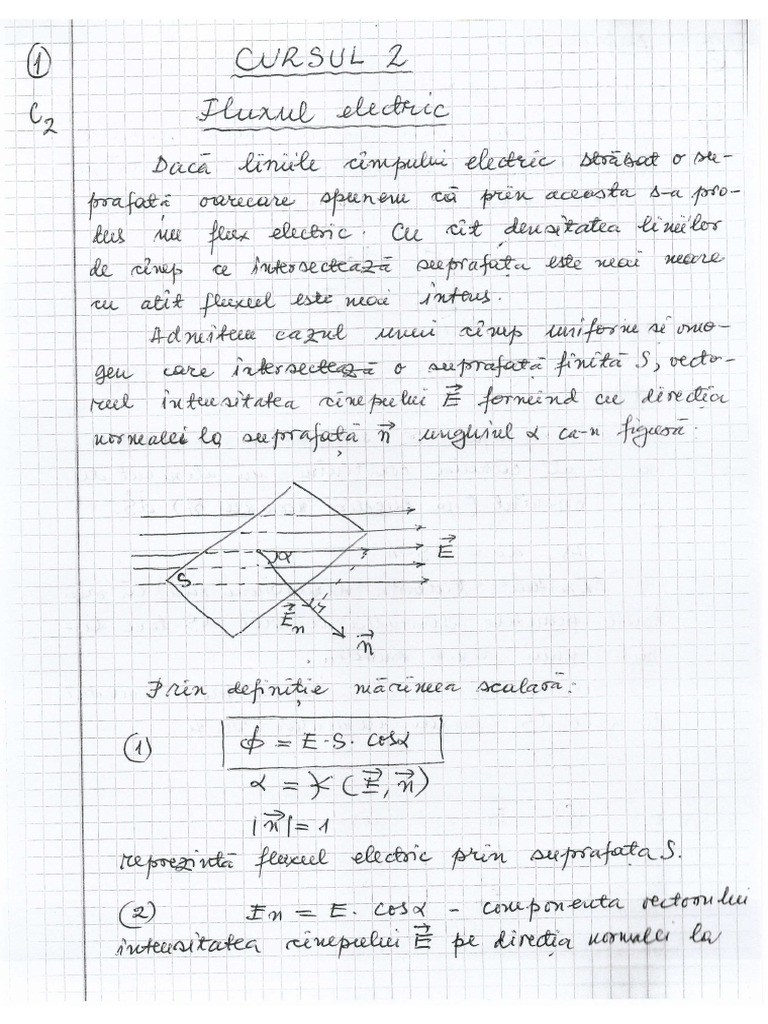 1
CURSUL 2
C2
Fluxul electric
Dacă liniile cîmpului electric străbat o su-
prafață oarecare spunem că prin aceasta s-a pro-
dus un flux electric. Cu cît densitatea liniilor
de cîmp ce intersectează suprafața este mai mare
cu atît fluxul este mai intens.
Admitem cazul unui cîmp uniform si omo-
gen care intersectează o suprafață finită S, vecto-
rul intensitatea cîmpului E⃗ formînd cu direcția
normalei la suprafață n⃗ unghiul α ca-n figură:
α
E⃗
S
E⃗n
n⃗
Prin definiție mărimea scalară:
(1) ϕ = E·S·cosα
α = ∢ (E⃗, n⃗)
|n⃗| = 1
reprezintă fluxul electric prin suprafața S.
(2) En = E. cosα - componenta vectorului
intensitatea cîmpului E⃗ pe direcția normalei la